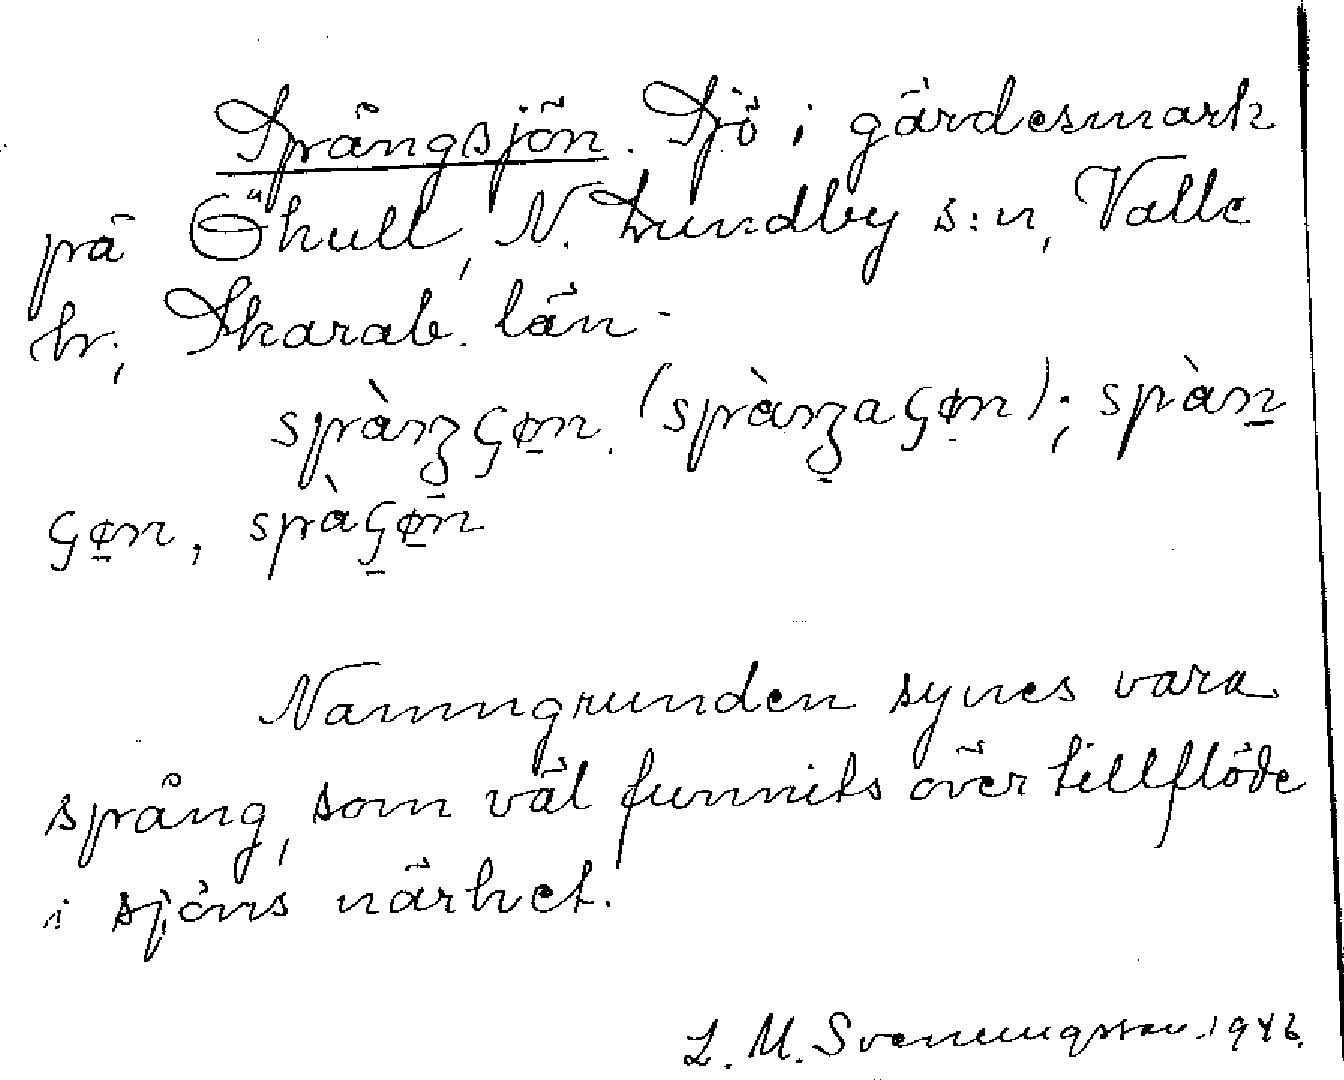 Språngsjön. Sjö i gärdesmark
på Öhull, N. Lundby s:n, Valle
hr, Skarab. län.
språŋʒɕøn (språŋʒaɕøn); språn
ɕøn, språɕøn
Namngrunden synes vara
språng, som väl funnits över tillflöde
i sjöns närhet.
L. M. Svenungsson 1946.